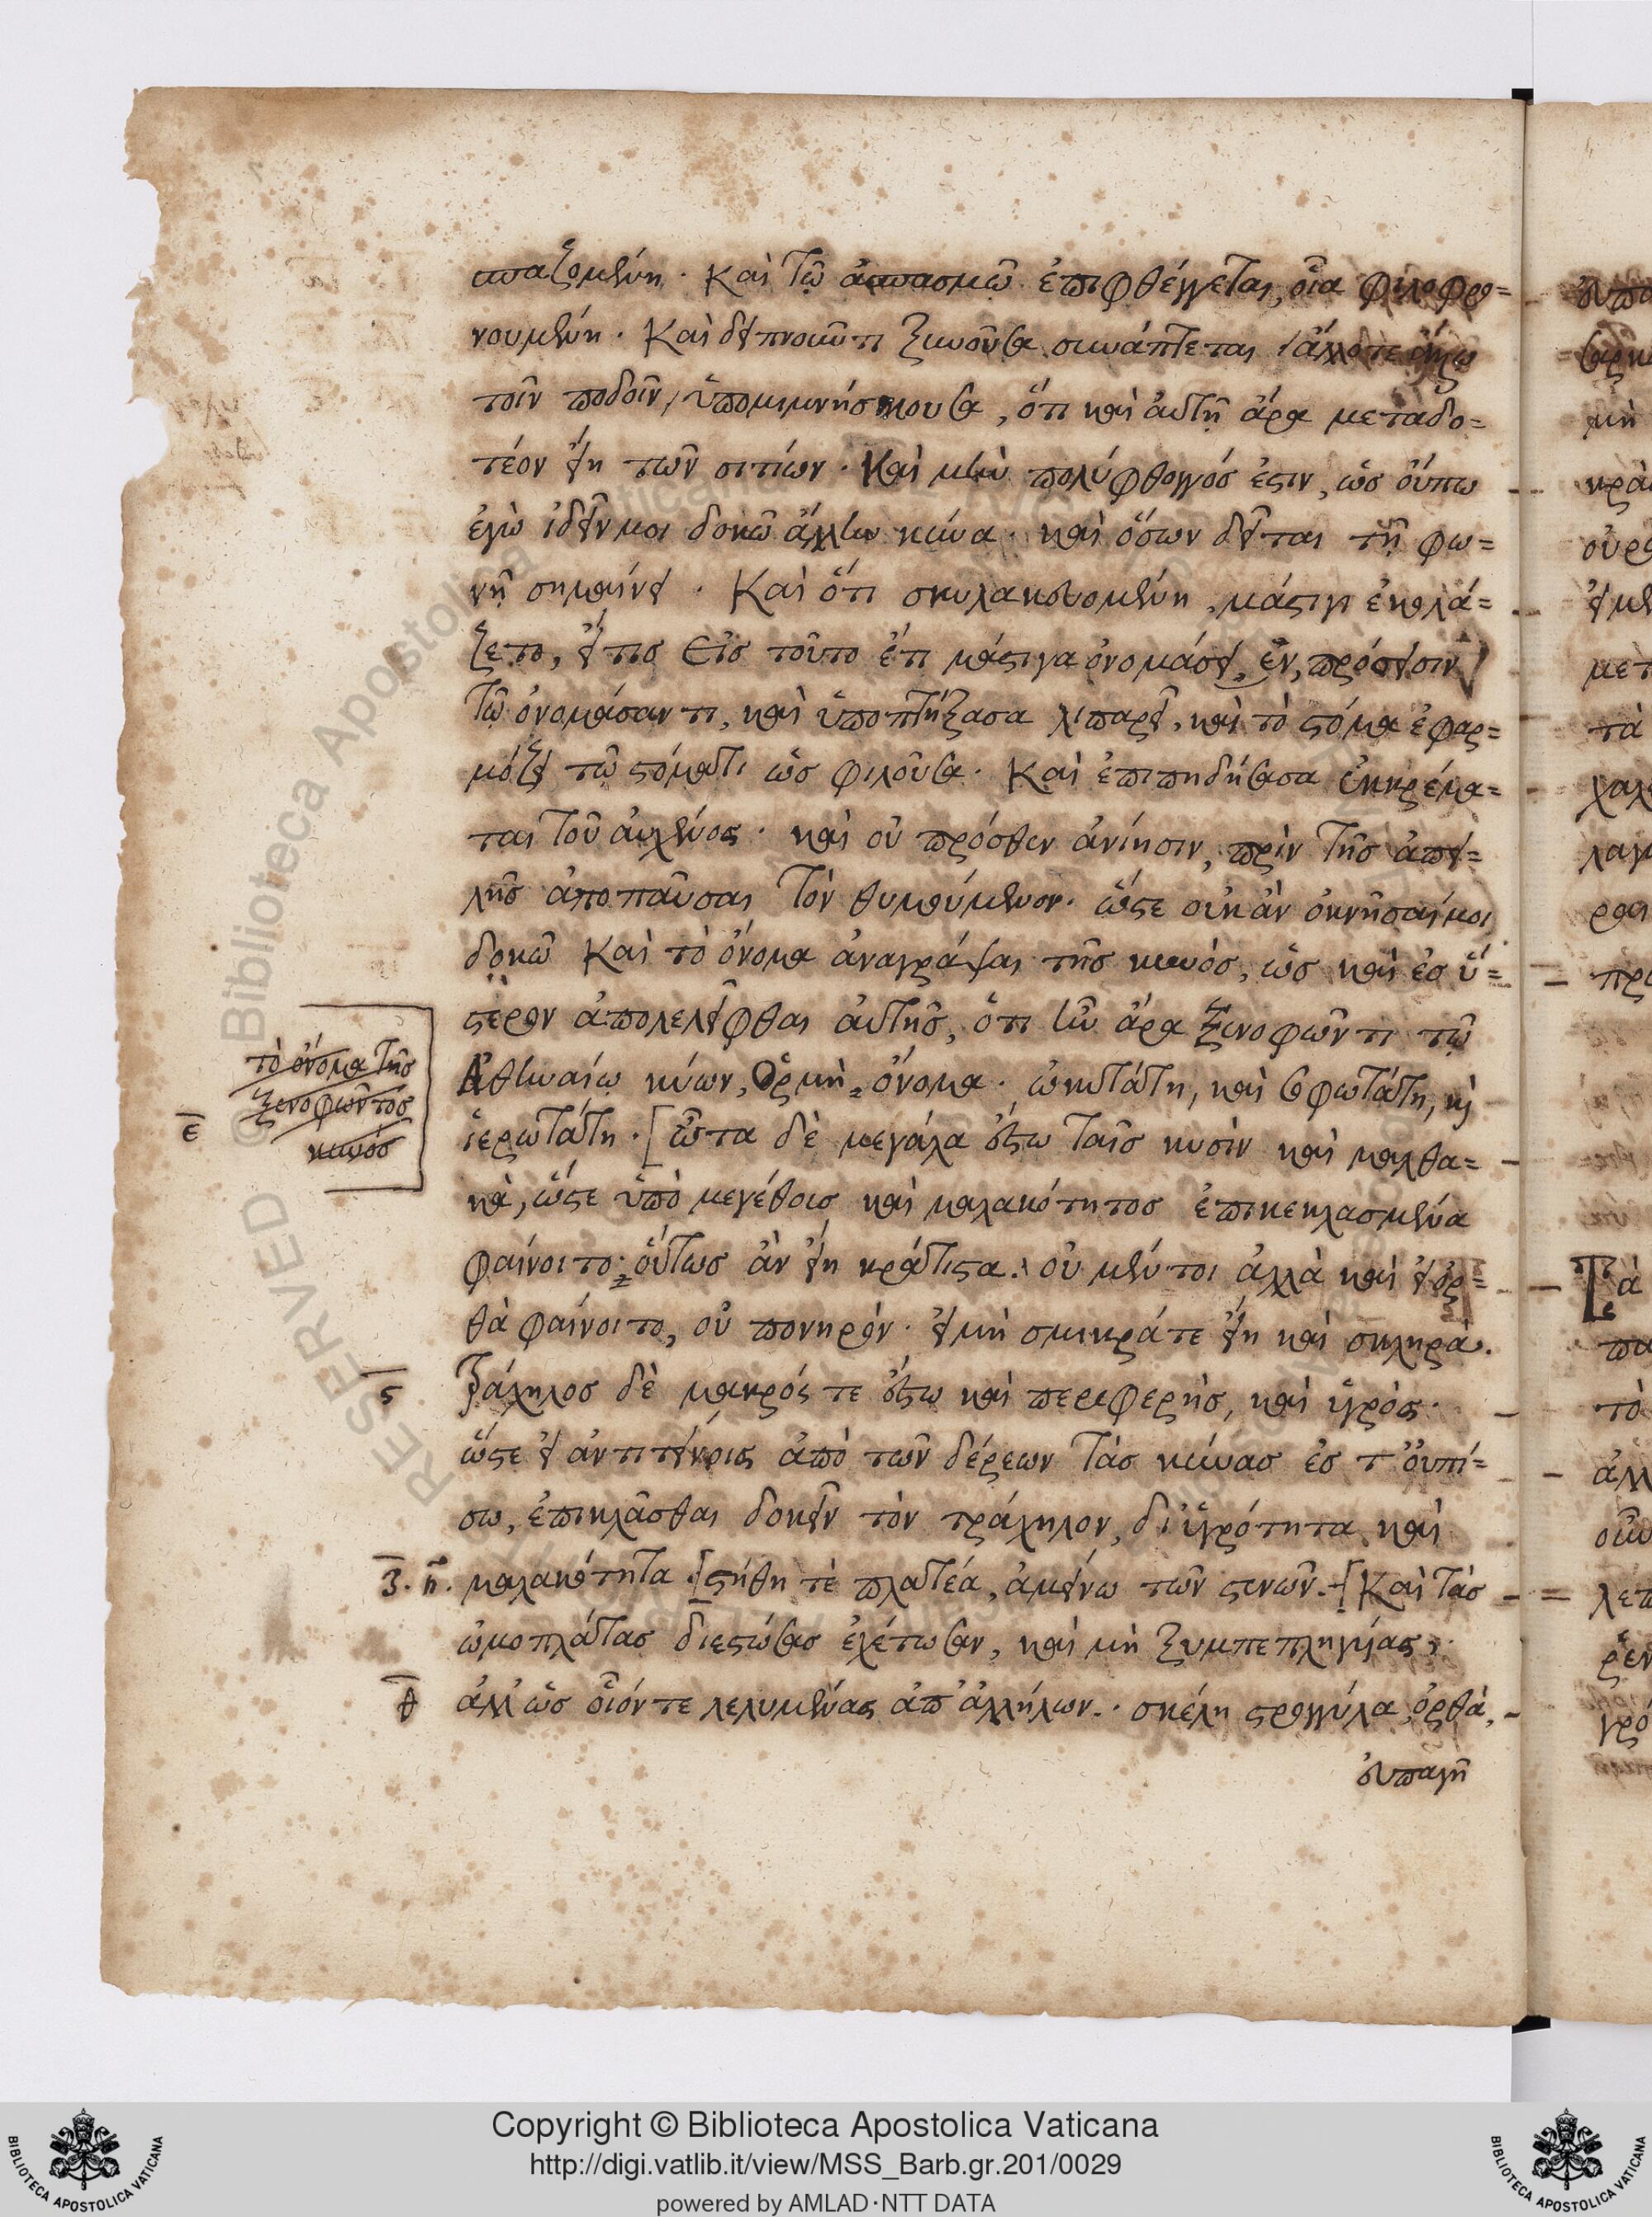 σπαζομένη. Καὶ τῷ ἀσπασμῷ ἐπιφθέγγεται, οἷα φιλοφρο=
νουμένη. Καὶ δειπνοῦντι ξυνοῦσα συνάπτεται ἄλλοτε ἄλλῳ
τοῖν ποδοῖν, ὑπομιμνήσκουσα, ὅτι καὶ αὐτῇ ἄρα μεταδο=
τέον εἴη τῶν σιτίων. Καὶ μὲν πολύφθογγός ἐστιν, ὡς οὔπω
ἐγὼ ἰδεῖν μοι δοκῶ ἄλλην κύνα. καὶ ὅσων δεῖται τῇ φω=
νῇ σημαίνει. Καὶ ὅτι σκυλακευομένη, μάστιγι ἐκολά=
ζετο, εἴ τις εἰς τοῦτο ἔτι μάστιγα ὀνομάσειεν, πρόσεισιν
τῷ ὀνομάσαντι, καὶ ὑποπτήξασα λιπαρεῖ, καὶ τὸ στόμα ἐφαρ=
μόζει τῷ στόματι ὡς φιλοῦσα. Καὶ ἐπιπηδήσασα ἐκκρέμα=
ται τοῦ αὐχένος. καὶ οὐ πρόσθεν ἀνίησιν, πρὶν τῆς ἀπει=
λῆς ἀποπαῦσαι τὸν θυμούμενον. ὥστε οὐκ ἂν ὀκνῆσαί μοι
δοκῶ καὶ τὸ ὄνομα ἀναγράψαι τῆς κυνός, ὡς καὶ ἐς ὕ=
στερον ἀπολελεῖφθαι αὐτῆς, ὅτι ἦν ἄρα Ξενοφῶντι τῷ
Ἀθηναίῳ κύων, Ὁρμὴ ὄνομα. ὠκυτάτη, καὶ σοφωτάτη, καὶ
ἱερωτάτη. [ὦτα δὲ μεγάλα ἔστω ταῖς κυσὶν καὶ μαλθα=
κὰ, ὥστε ὑπὸ μεγέθους καὶ μαλακότητος ἐπικεκλασμένα
φαίνοιτο. οὕτως ἂν εἴη κράτιστα. οὐ μέντοι ἀλλὰ καὶ εἰ ὀρ=
θὰ φαίνοιτο, οὐ πονηρόν. εἰ μὴ σμικρά τε εἴη καὶ σκληρά.
Τράχηλος δὲ μακρός τε ἔστω καὶ περιφερής, καὶ ὑγρός.
ὥστε εἰ ἀντιτείνοις ἀπὸ τῶν δέρεων τὰς κύνας ἐς τ' οὐπί=
σω, ἐπικλᾶσθαι δοκεῖν τὸν τράχηλον, δι' ὑγρότητα καὶ
μαλακότητα. [στήθη τὲ πλατέα, ἀμείνω τῶν στενῶν. [Καὶ τὰς
ὠμοπλάτας διεστώσας ἐχέτωσαν, καὶ μὴ ξυμπεπληγυίας,
ἀλλ' ὡς οἷόν τε λελυμένας ἀπ' ἀλλήλων. σκέλη στρογγύλα, ὀρθὰ,
εὐπαγῆ
τὸ ὄνομα τῆς
ξενοφῶντος
κυνός
ε
ς
ζ. η.
θ
Copyright © Biblioteca Apostolica Vaticana
http://digi.vatlib.it/view/MSS_Barb.gr.201/0029
powered by AMLAD·NTT DATA